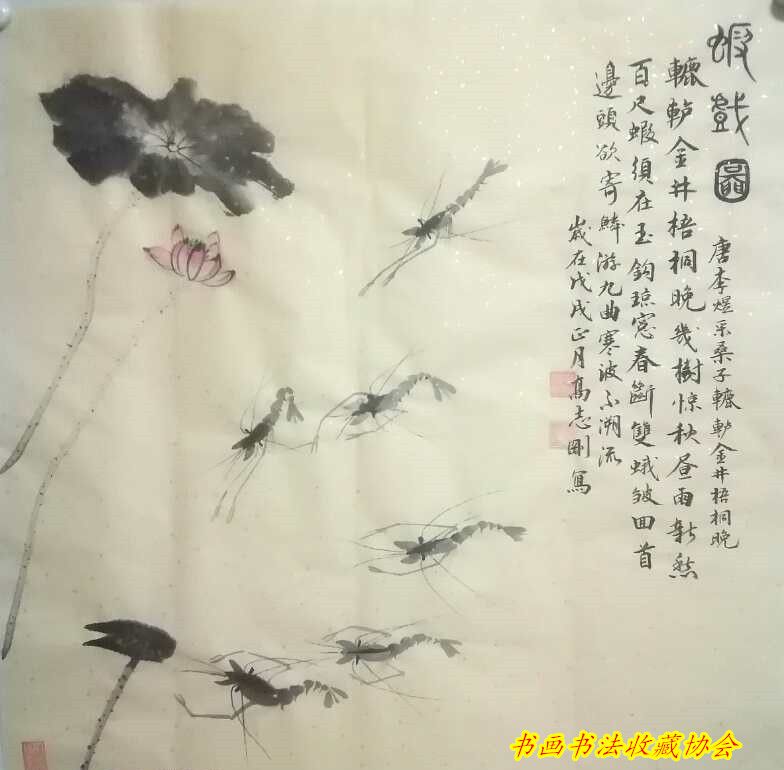 蝦戲圖
唐李煜采桑子轆轤金井梧桐晚
轆轤金井梧桐晚幾樹惊秋昼雨新愁
百尺蝦須在玉鈎琼窓春斷雙蛾皱回首
邊頭欲寄鱗游九曲寒波不溯流
歲在戊戌正月高志剛寫
书画书法收藏协会